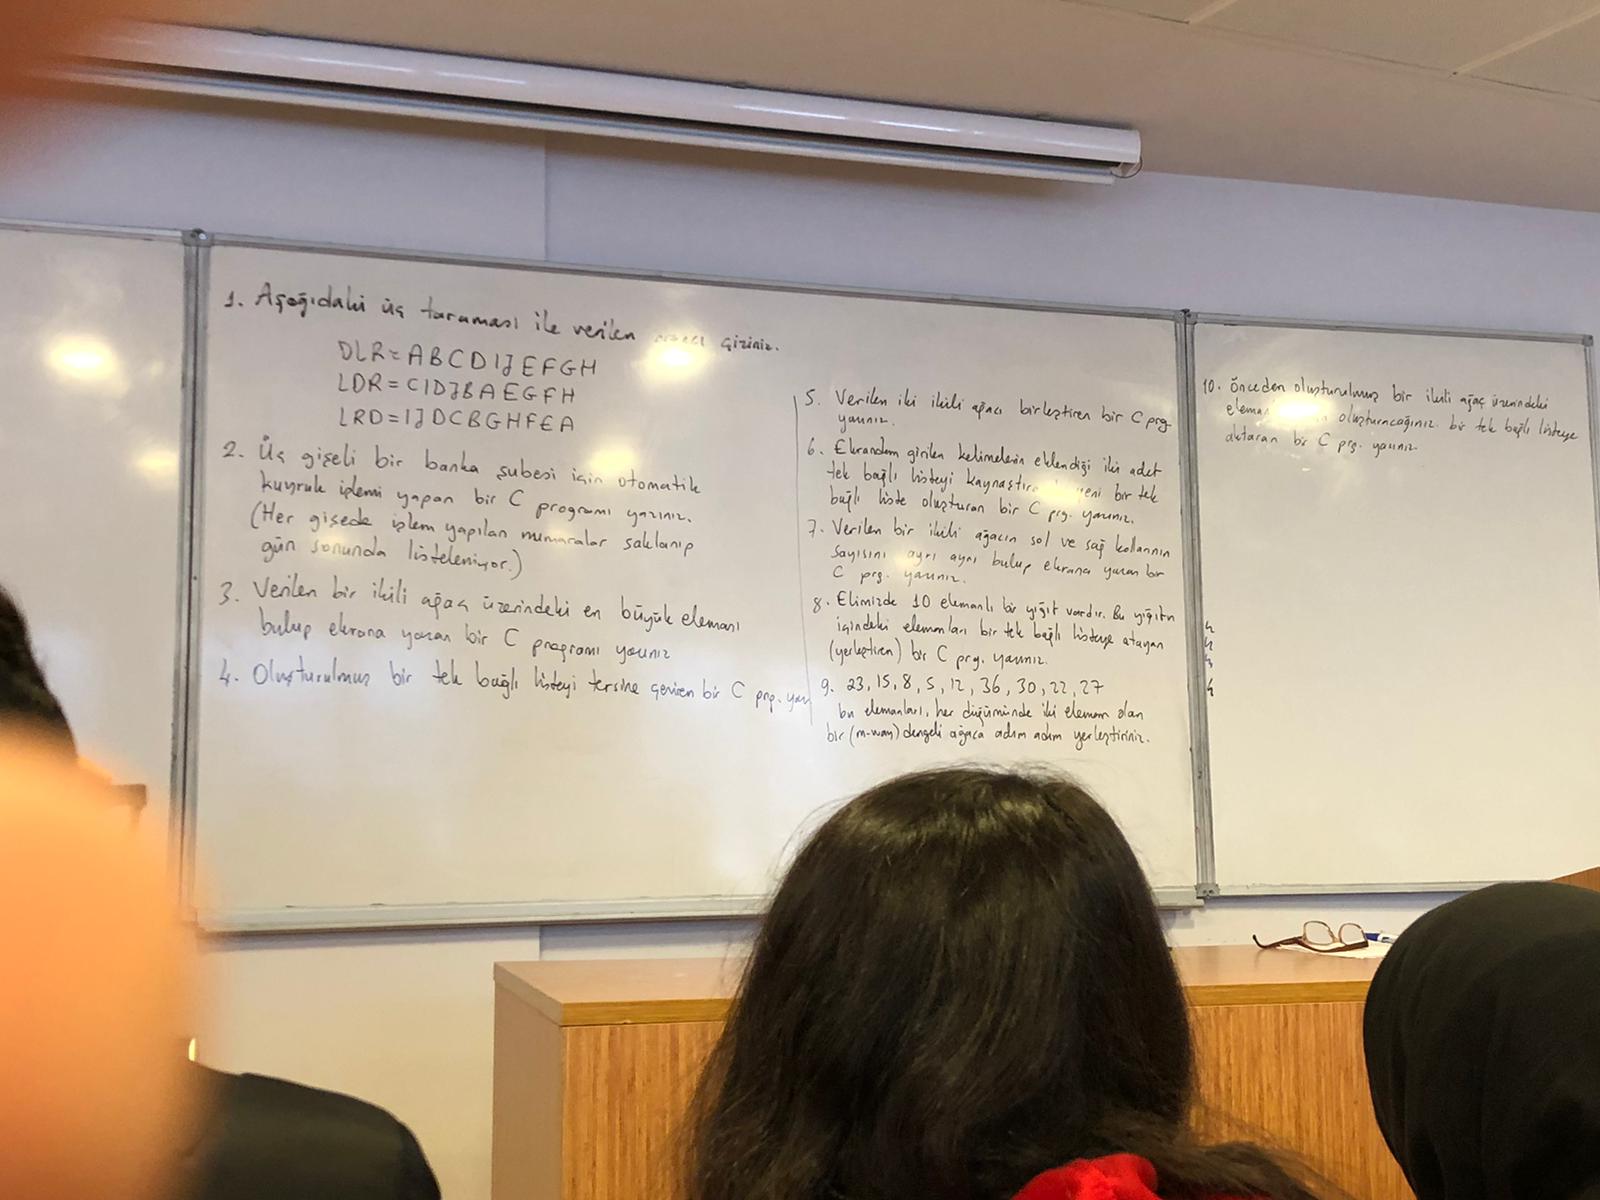 1. Aşağıdaki üç taraması ile verilen çiziniz.
DLR=ABCDIJEFGH
LDR=CIDJBAEGFH
LRD=IJDCBGHFEA
2. Üç gişeli bir banka şubesi için otomatik
kuyruk işlemi yapan bir C programı yazınız.
(Her gişede işlem yapılan numaralar saklanıp
gün sonunda listeleniyor.)
3. Verilen bir ikili ağaç üzerindeki en büyük elemanı
bulup ekrana yazan bir C programı yazınız
4. Oluşturulmuş bir tek bağlı listeyi tersine çeviren bir C prg.
5. Verilen iki ikili ağacı birleştiren bir C prg.
yazınız.
6. Ekrandan girilen kelimelerin eklendiği iki adet
tek bağlı listeyi yeni bir tek
bağlı liste oluşturan bir C prg. yazınız.
7. Verilen bir ikili ağacın sol ve sağ kollarının
sayısını ayrı ayrı bulup ekrana yazan bir
C prg. yazınız.
8. Elimizde 10 elemanlı bir yığıt vardır. Bu yığıtın
içindeki elemanları bir tek bağlı listeye atayan
(yerleştiren) bir C prg. yazınız.
9. 23, 15, 8, 5, 12, 36, 30, 22, 27
bu elemanları, her düğümünde iki eleman olan
bir (m-way) dengeli ağaca adım adım yerleştiriniz.
10. Önceden oluşturulmuş bir ikili ağaç üzerindeki
oluşturacağınız bir tek bağlı listeye
aktaran bir C prg. yazınız.